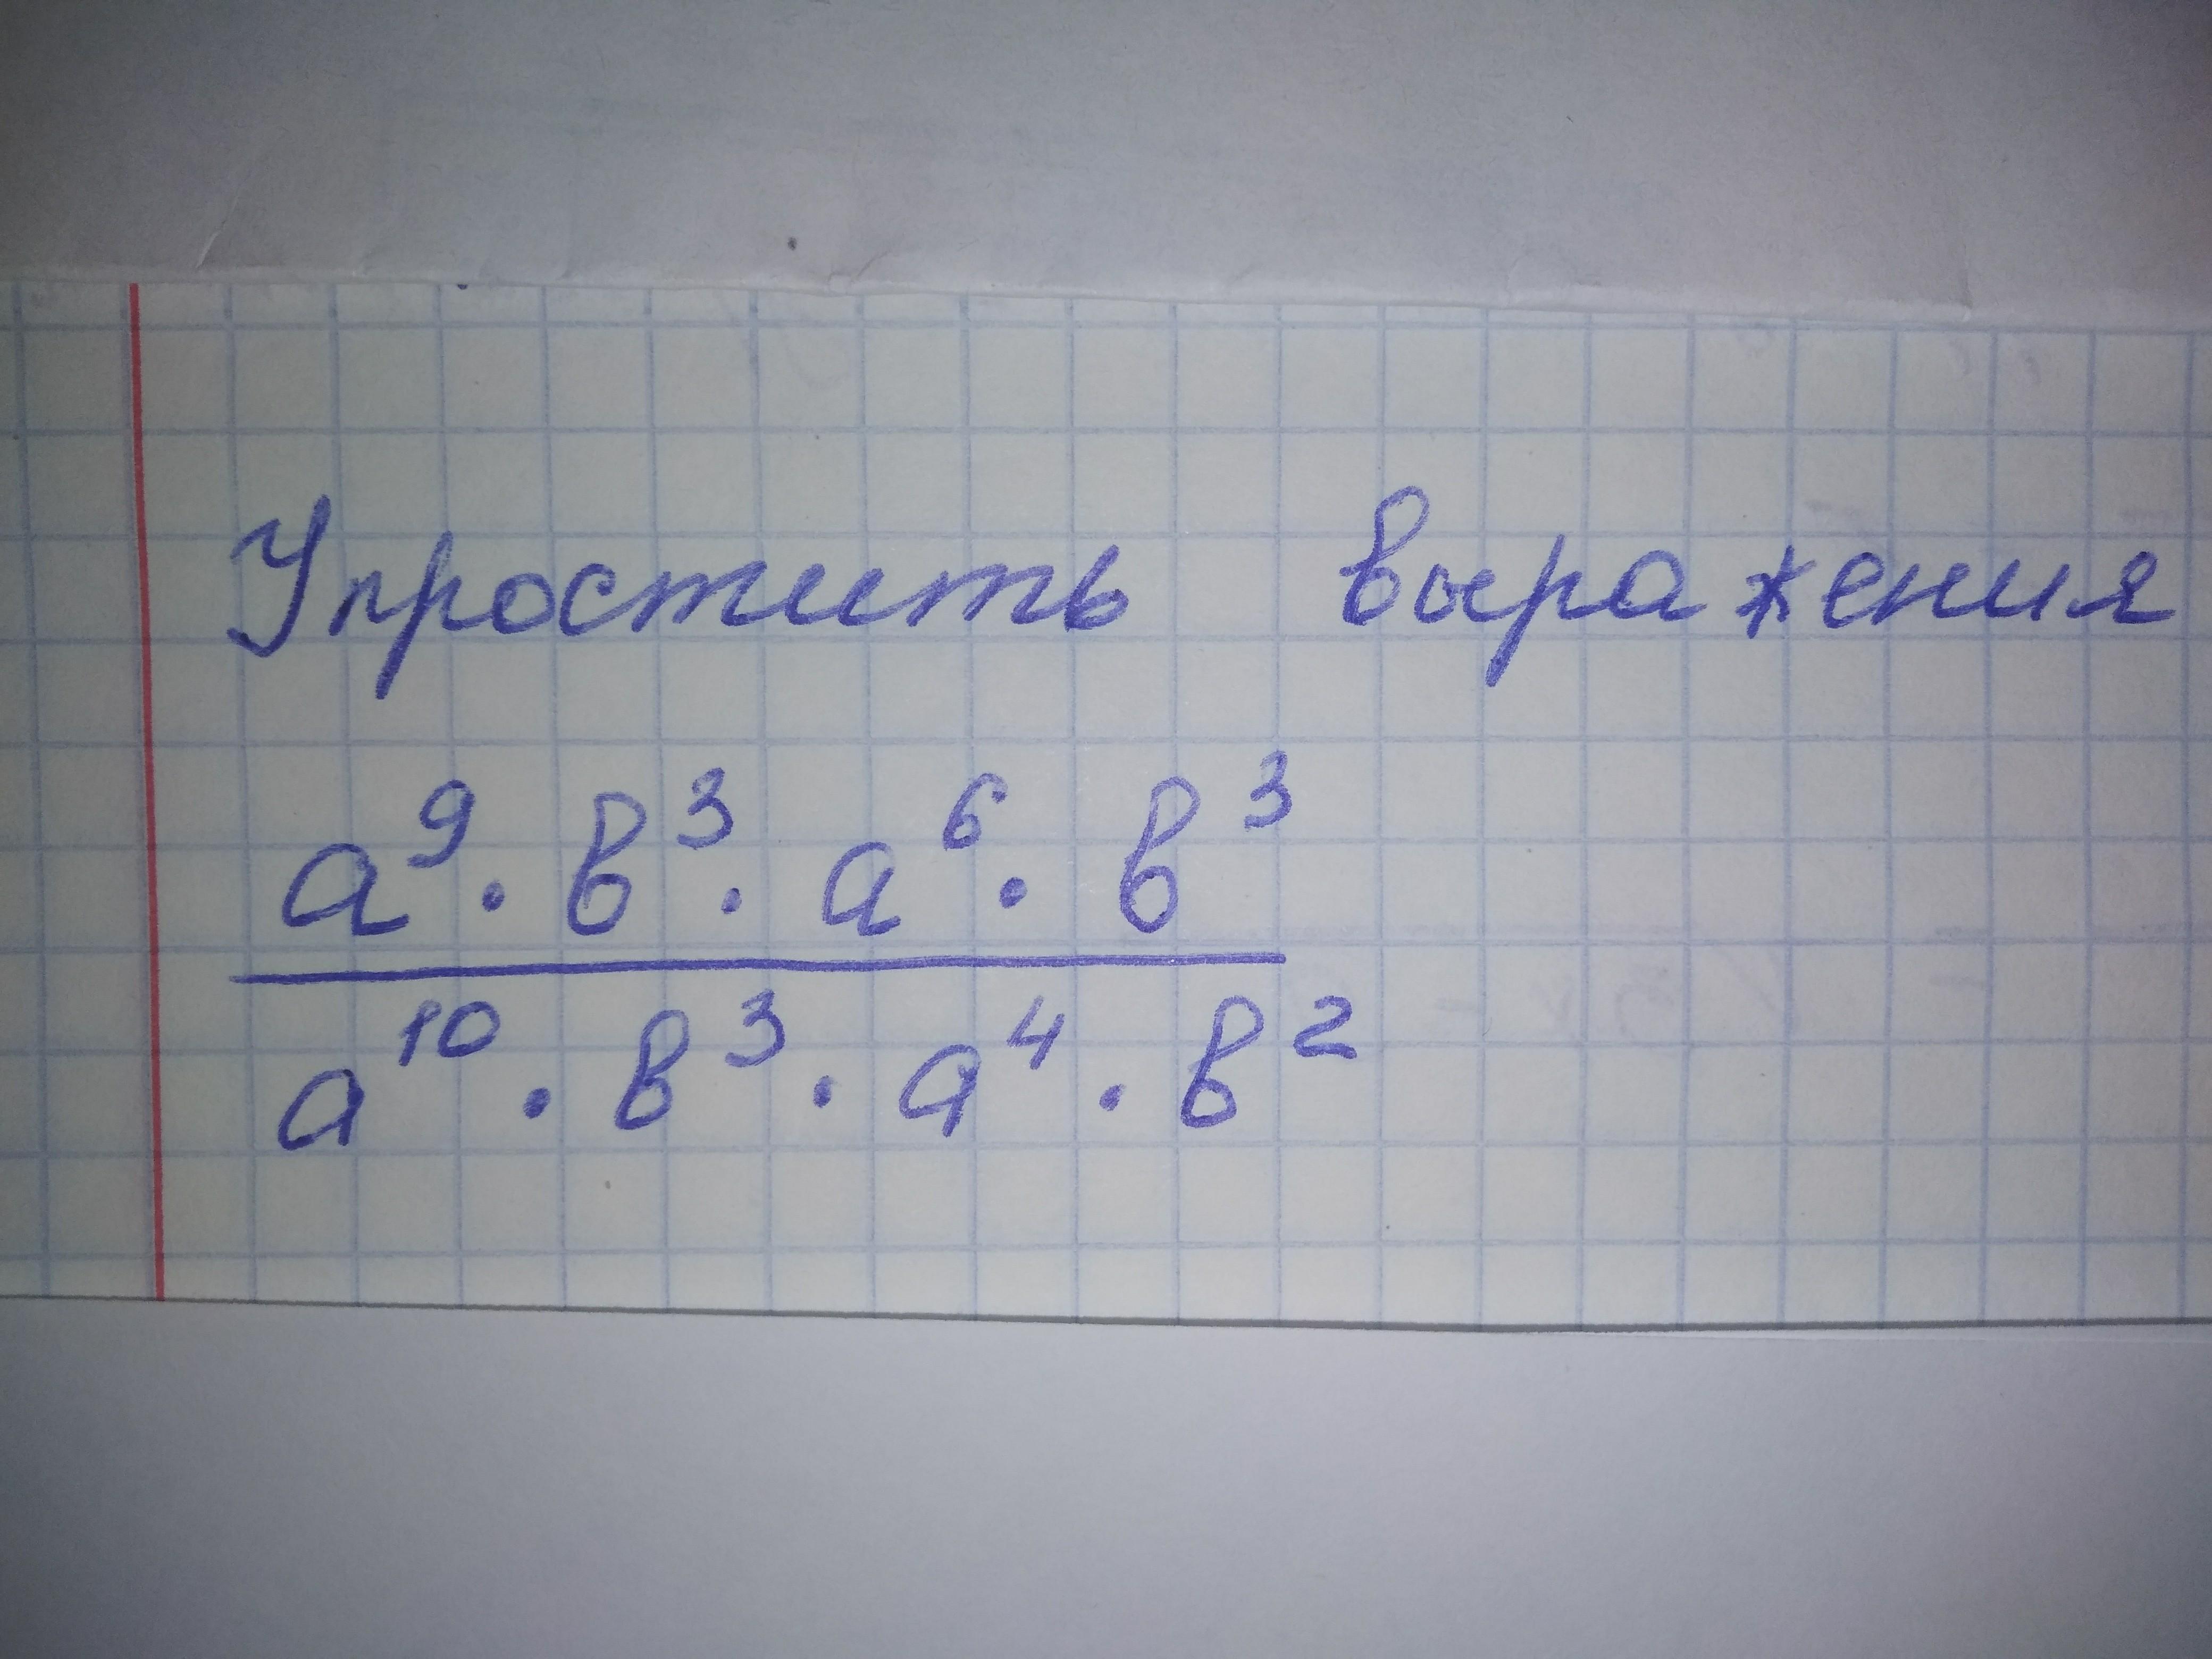 Упростить выражения
a⁹ · в³ · a⁶ · в³
a¹⁰ · в³ · a⁴ · в²